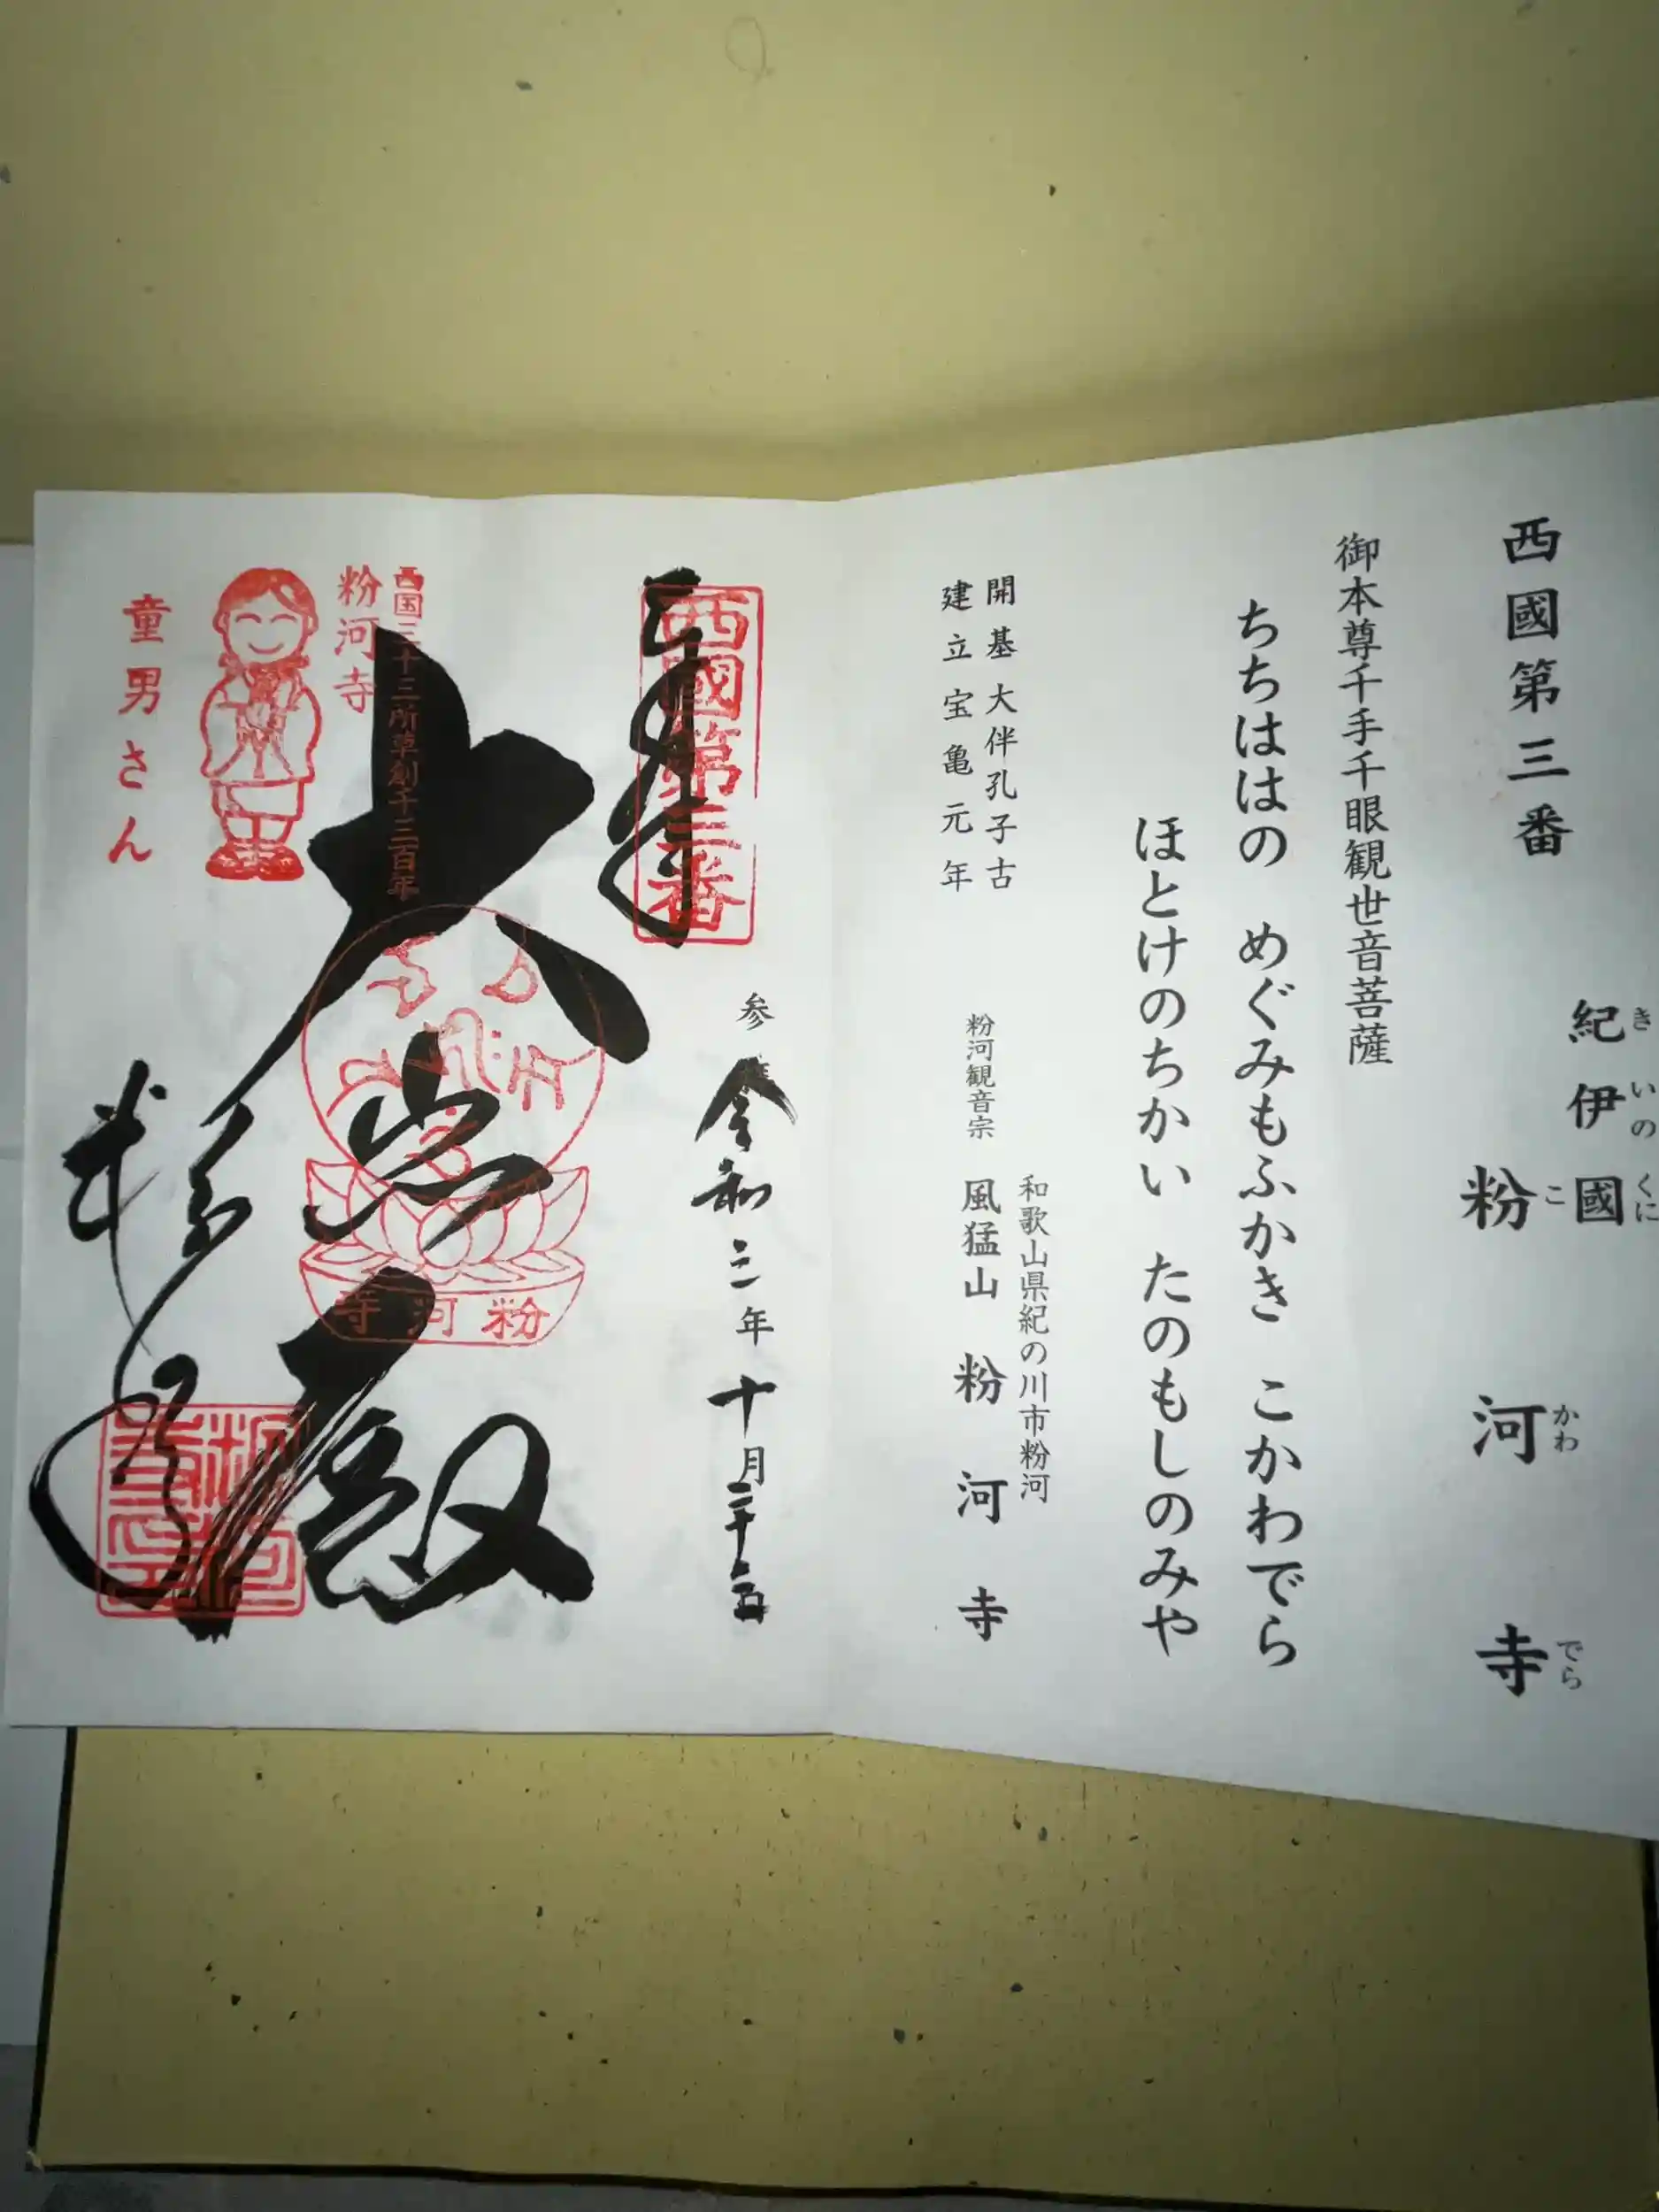 西國第三番
紀伊國
きいのくに
粉河寺
こかわでら
御本尊千手千眼観世音菩薩
ちちははの めぐみもふかき こかわでら
ほとけのちかい たのもしのみや
開基大伴孔子古
建立宝亀元年
和歌山県紀の川市粉河
粉河観音宗 風猛山 粉河寺
奉拝
西國第三番
参拝
令和三年十月二十五
大悲殿
西国三十三所草創千三百年
粉河寺
童男さん
粉河寺
粉河寺